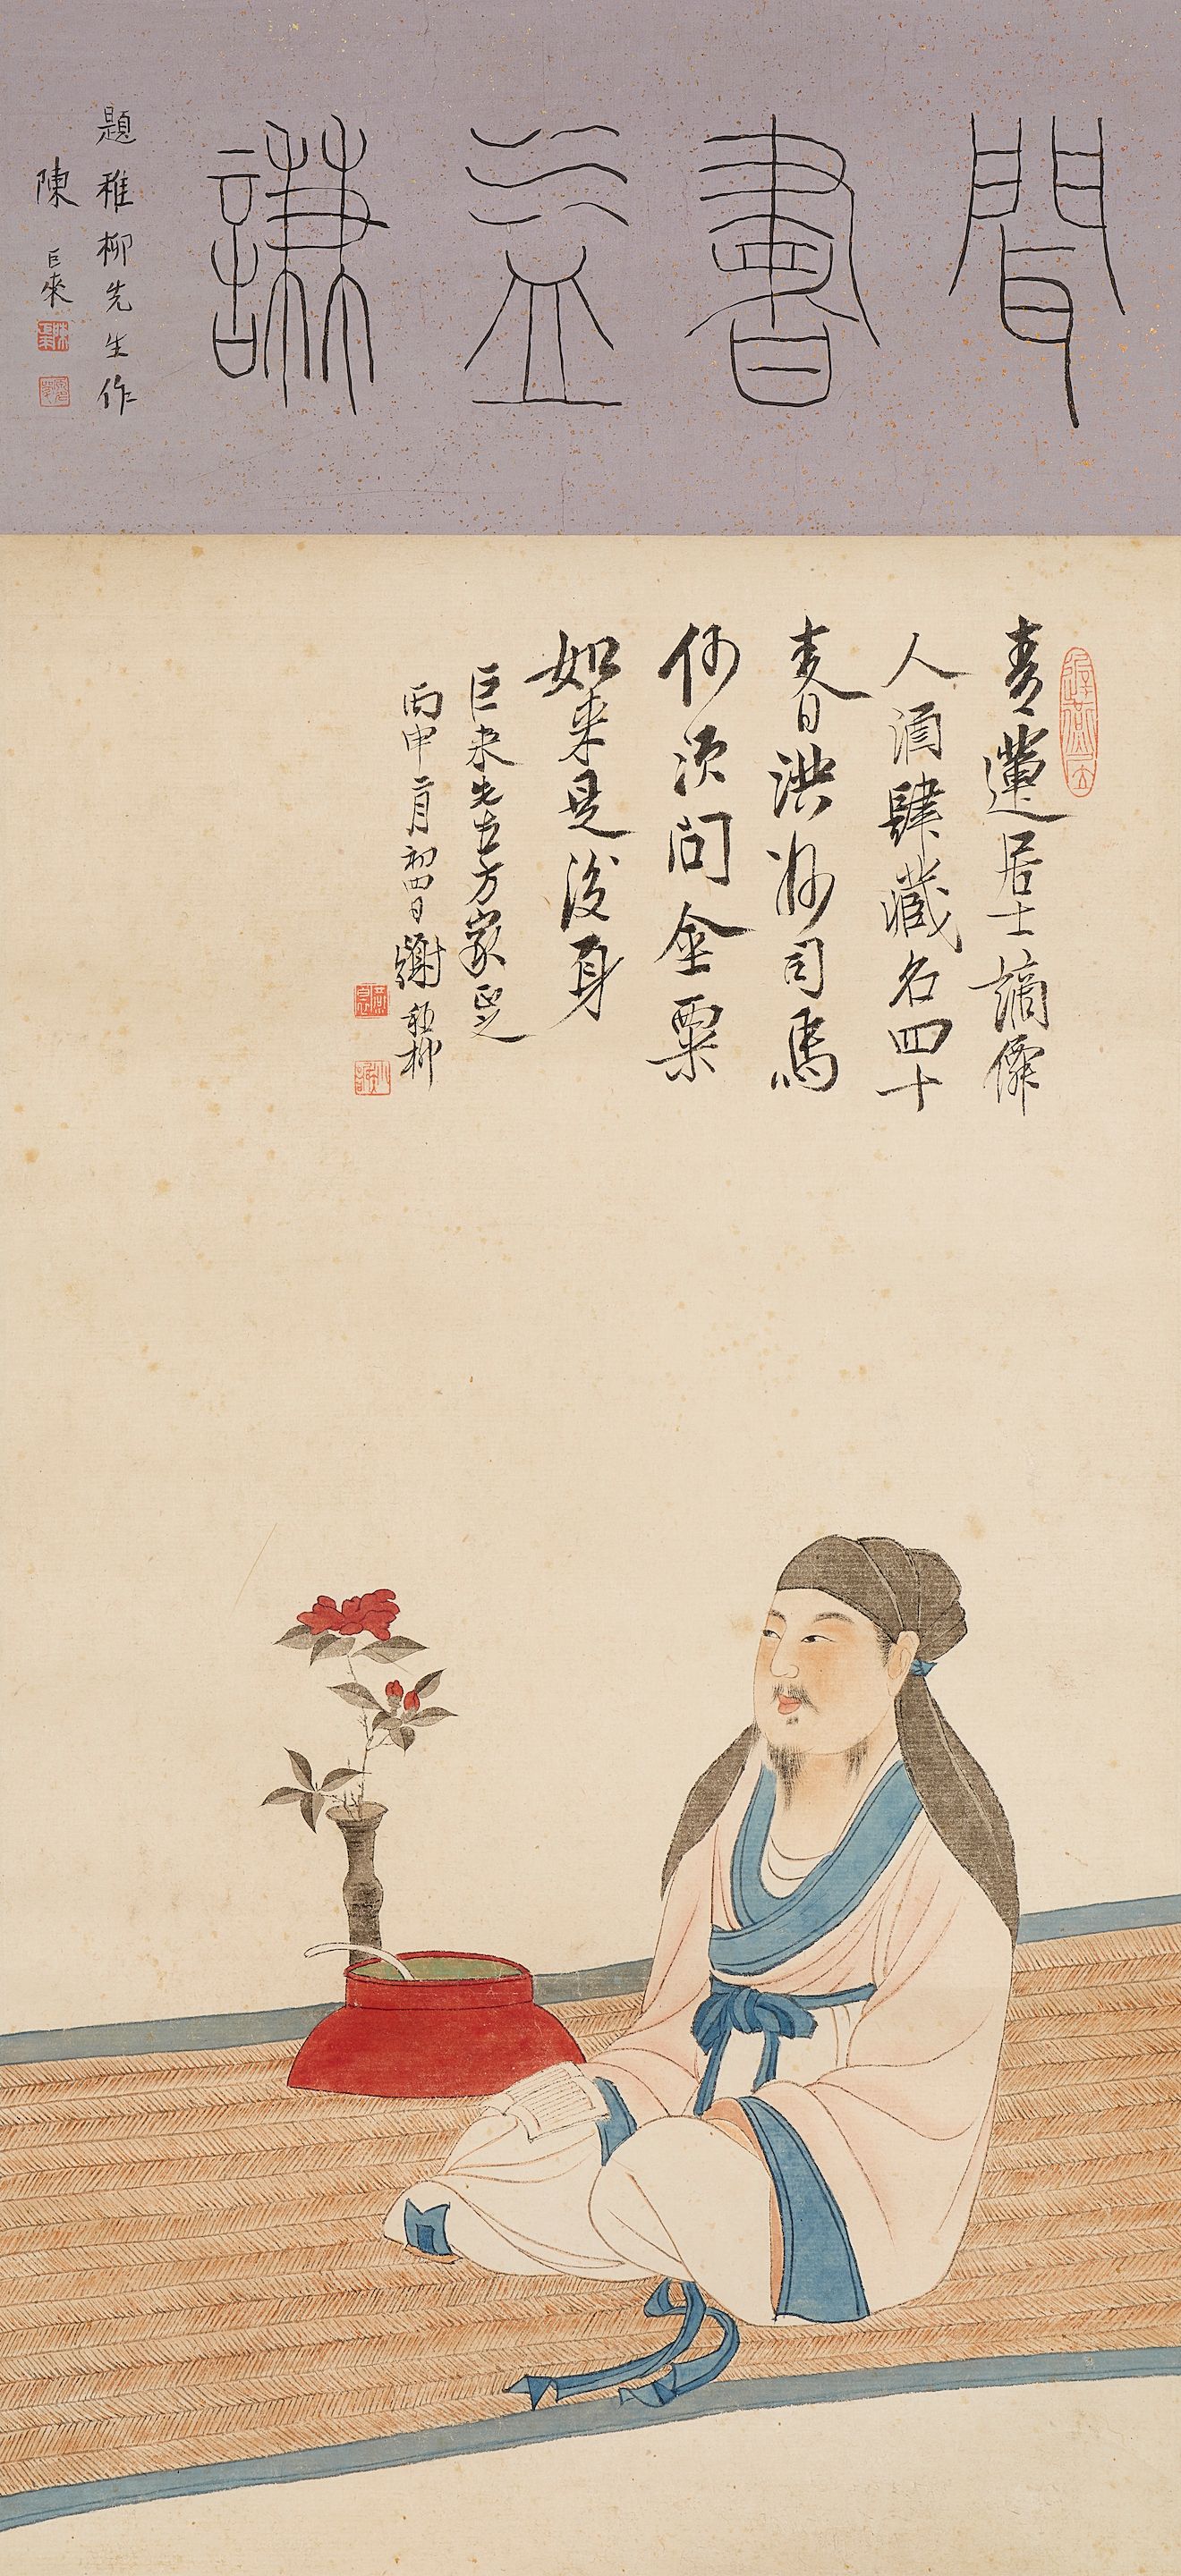 閒書益謙
題稚柳先生作
陳巨來
青蓮居士謫僊
人酒肆藏名四十
春洪州司馬
何須問金粟
如來是後身
巨來先生方家正之
丙申二月初四日謝稚柳